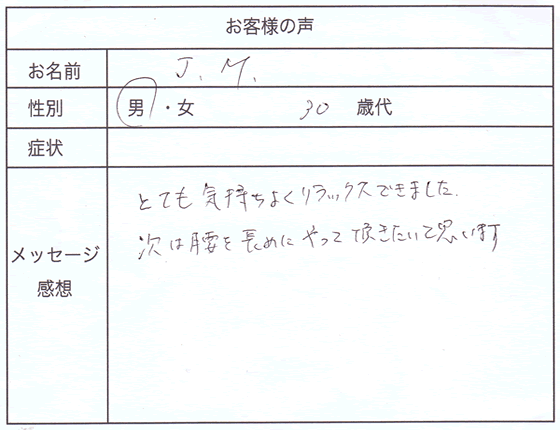 お客様の声
お名前 J. M.
性別 男・女 30 歳代
症状
メッセージ
感想
とても気持ちよくリラックスできました.
次は腰を長めにやって頂きたいて思います